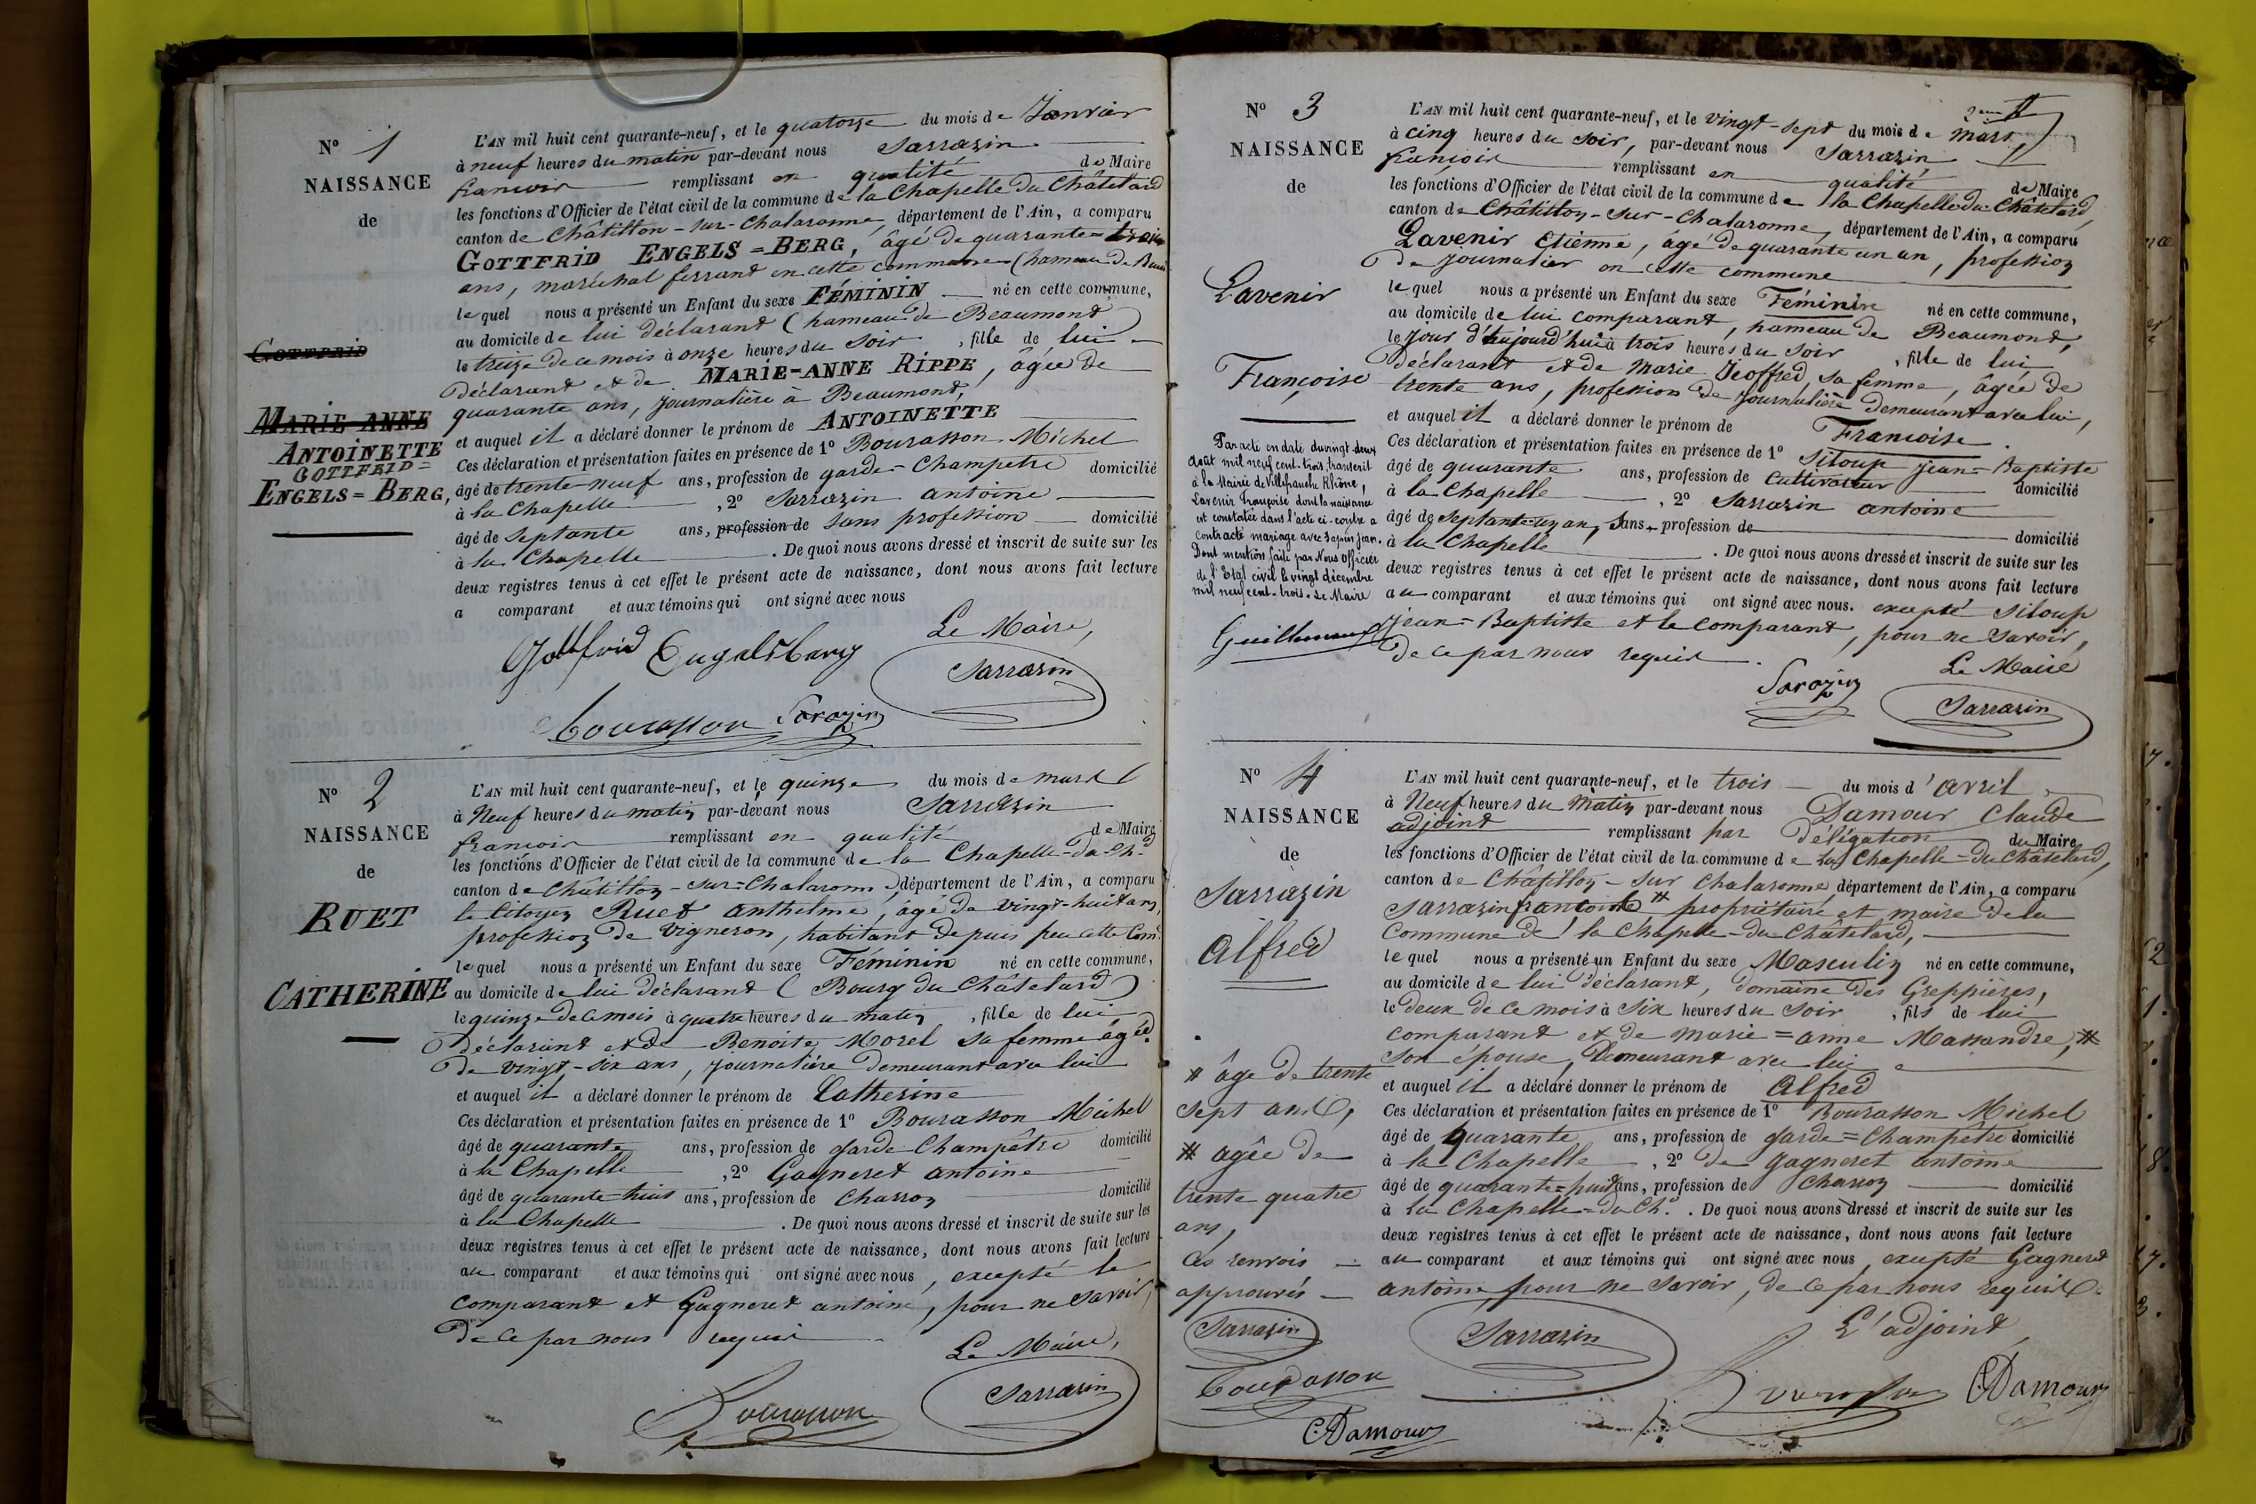 N° 1
NAISSANCE
de
GOTTFRID
MARIE ANNE
ANTOINETTE
GOTTFRID=
ENGELS=BERG,
L'AN mil huit cent quarante-neuf, et le quatorze du mois de Janvier
à neuf heures du matin par-devant nous Sarrazin
francois remplissant en qualité de Maire
les fonctions d'Officier de l'état civil de la commune de la Chapelle du Châtelard
canton de Châtillon-sur-Chalaronne, département de l'Ain, a comparu
GOTTFRID ENGELS=BERG, âgé de quarante=trois
ans, maréchal ferrant en cette commune (hameau de
le quel nous a présenté un Enfant du sexe FÉMININ né en cette commune,
au domicile de lui déclarant (hameau de Beaumont)
le treize de ce mois à onze heures du soir, fille de lui
déclarant et de MARIE-ANNE RIPPE, âgée de
quarante ans, journalière à Beaumont,
et auquel il a déclaré donner le prénom de ANTOINETTE
Ces déclaration et présentation faites en présence de 1° Bourasson Michel
âgé de trente-neuf ans, profession de garde=Champetre domicilié
à la Chapelle, 2° Sarrazin antoine
âgé de septante ans, profession de sans profession domicilié
à la Chapelle. De quoi nous avons dressé et inscrit de suite sur les
deux registres tenus à cet effet le présent acte de naissance, dont nous avons fait lecture
a comparant et aux témoins qui ont signé avec nous
Le Maire,
Gottfrid Engelsberg
Sarrazin
Bourasson Sarazin
N° 2
NAISSANCE
de
RUET
CATHERINE
L'AN mil huit cent quarante-neuf, et le quinze du mois de mars
à Neuf heures du matin par-devant nous Sarrazin
francois remplissant en qualité de Maire
les fonctions d'Officier de l'état civil de la commune de la Chapelle-du Ch.d
canton de Châtillon-sur=Chalaronne, département de l'Ain, a comparu
le Citoyen Ruet anthelme, âgé de vingt-huit ans,
profession de vigneron, habitant depuis peu cette Com.
le quel nous a présenté un Enfant du sexe Féminin né en cette commune,
au domicile de lui déclarant (Bourg du Châtelard)
le quinze de ce mois à quatre heures du matin, fille de lui
déclarant et de Benoite Morel sa femme âgée
de vingt-six ans, journalière demeurant avec lui
et auquel il a déclaré donner le prénom de Catherine
Ces déclaration et présentation faites en présence de 1° Bourasson Michel
âgé de quarante ans, profession de garde Champêtre domicilié
à la Chapelle, 2° Gagneret antoine
âgé de quarante=huit ans, profession de Charron domicilié
à la Chapelle. De quoi nous avons dressé et inscrit de suite sur les
deux registres tenus à cet effet le présent acte de naissance, dont nous avons fait lecture
au comparant et aux témoins qui ont signé avec nous, excepté le
comparant et Gagneret antoine, pour ne savoir,
de ce par nous requis
Le Maire,
Sarrazin
Bourasson
N° 3
NAISSANCE
de
Lavenir
Françoise
Par acte en date du vingt deux
Août mil neuf cent-trois, transcrit
à la Mairie de Villefranche Rhône,
Lavenir Françoise dont la naissance
est constatée dans l'acte ci-contre a
contracté mariage avec Sapin Jean.
Dont mention faite par Nous Officier
de l'Etat civil le vingt décembre
mil neuf cent-trois. Le Maire
L'AN mil huit cent quarante-neuf, et le vingt-sept du mois de mars,
à cinq heures du soir, par-devant nous Sarrazin
françois remplissant en qualité de Maire
les fonctions d'Officier de l'état civil de la commune de la Chapelle du Châtelard,
canton de Châtillon-sur-Chalaronne, département de l'Ain, a comparu
Lavenir Etienne, âgé de quarante un an, profession
de journalier en cette commune
le quel nous a présenté un Enfant du sexe Féminin né en cette commune,
au domicile de lui comparant, hameau de Beaumont,
le jour d'aujourd'hui à trois heures du soir, fille de lui
déclarant et de Marie Jeoffred, sa femme, âgée de
trente ans, profession de journalière demeurant avec lui,
et auquel il a déclaré donner le prénom de Francoise.
Ces déclaration et présentation faites en présence de 1° Siloup jean=Baptiste
âgé de quarante ans, profession de Cultivateur domicilié
à la Chapelle, 2° Sarrazin antoine
âgé de septante un an, sans profession de domicilié
à la Chapelle. De quoi nous avons dressé et inscrit de suite sur les
deux registres tenus à cet effet le présent acte de naissance, dont nous avons fait lecture
au comparant et aux témoins qui ont signé avec nous. excepté Siloup
jean=Baptiste et le comparant, pour ne savoir,
de ce par nous requis.
Le Maire
Sarazin
Sarrazin
N° 4
NAISSANCE
de
Sarrazin
Alfred
# âge de trente
sept ans,
# agée de
trente quatre
ans,
Ces renvois
approuvés
Sarrazin
Bourasson
CDamour
L'AN mil huit cent quarante-neuf, et le trois du mois d'avril
à Neuf heures du matin par-devant nous Damour Claude
adjoint remplissant par délégation du Maire
les fonctions d'Officier de l'état civil de la commune de la Chapelle-du Châtelard,
canton de Châtillon-sur Chalaronne département de l'Ain, a comparu
Sarrazin francois # propriétaire et maire de la
Commune de la Chapelle-du Châtelard,
le quel nous a présenté un Enfant du sexe Masculin né en cette commune,
au domicile de lui déclarant, domaine des Greppières,
le deux de ce mois à six heures du soir, fils de lui
comparant et de marie=anne Massandre, #
son épouse, demeurant avec lui
et auquel il a déclaré donner le prénom de Alfred
Ces déclaration et présentation faites en présence de 1° Bourasson Michel
âgé de quarante ans, profession de garde=Champêtre domicilié
à la Chapelle, 2° de Gagneret antoine
âgé de quarante=huit ans, profession de Charron domicilié
à la Chapelle-du Ch.d. De quoi nous avons dressé et inscrit de suite sur les
deux registres tenus à cet effet le présent acte de naissance, dont nous avons fait lecture
au comparant et aux témoins qui ont signé avec nous excepté Gagneret
antoine pour ne savoir, de ce par nous requis
L'adjoint
Sarrazin
Bourasson
CDamour